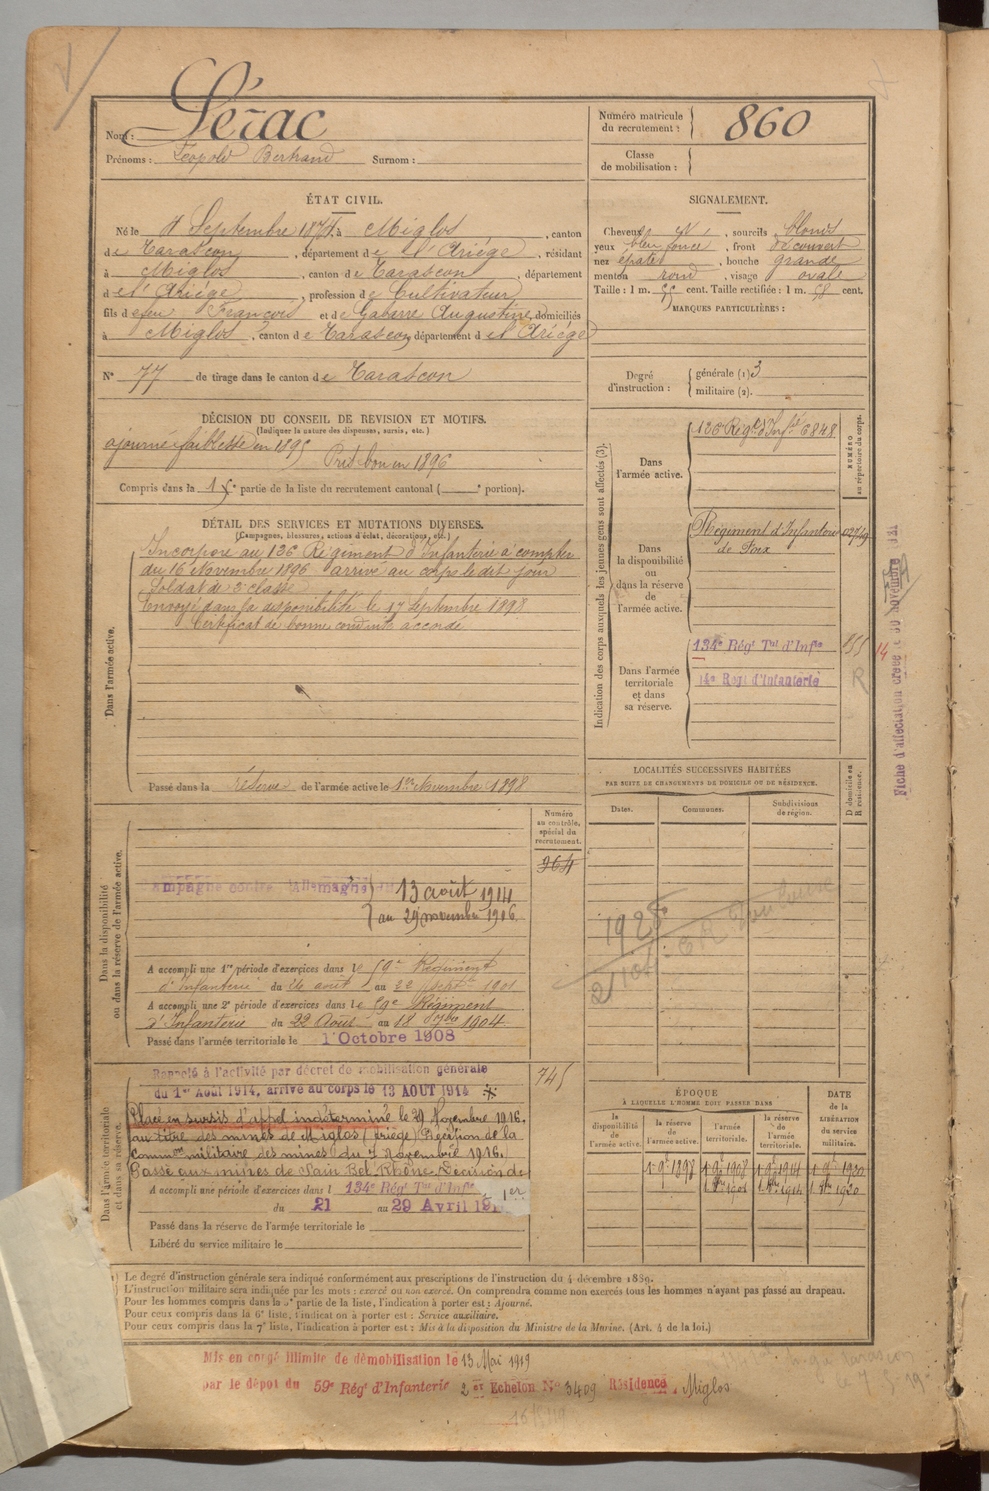 Nom : Sérac
Prénoms : Léopold Bertrand Surnom :
Numéro matricule du recrutement : 860
Classe de mobilisation :
ÉTAT CIVIL.
Né le Septembre 1874, à Miglos, canton
de Tarascon, département de l'Ariége, résidant
à Miglos, canton de Tarascon, département
de l'Ariége, profession de Cultivateur
fils de feu François et de Gabarre Augustine, domiciliés
à Miglos, canton de Tarascon, département de l'Ariége
N° 77 de tirage dans le canton de Tarascon
SIGNALEMENT.
Cheveux et, sourcils blonds
yeux bleu foncé, front découvert
nez épaté, bouche grande
menton rond, visage ovale
Taille : 1 m. cent. Taille rectifiée : 1 m. 58 cent.
MARQUES PARTICULIÈRES :
Degré d'instruction : générale (1) 3
militaire (2).
DÉCISION DU CONSEIL DE REVISION ET MOTIFS.
(Indiquer la nature des dispenses, sursis, etc.)
ajourné faiblesse en 1895
Pris bon en 1896
Compris dans la 1e partie de la liste du recrutement cantonal ( e portion).
DÉTAIL DES SERVICES ET MUTATIONS DIVERSES.
(Campagnes, blessures, actions d'éclat, décorations, etc.)
Dans l'armée active.
Incorporé au 126e Régiment d'Infanterie à compter
du 16 Novembre 1896 arrivé au corps le dit jour
Soldat de 2e classe
Envoyé dans la disponibilité le 17 Septembre 1898
Certificat de bonne conduite accordé
Passé dans la réserve de l'armée active le 1er Novembre 1898
Indication des corps auxquels les jeunes gens sont affectés (3).
NUMÉRO au répertoire du corps.
Dans l'armée active.
126e Régt d'Infie 6848
Dans la disponibilité ou dans la réserve de l'armée active.
Régiment d'Infanterie
de Foix
Dans l'armée territoriale et dans sa réserve.
134e Régt Tal d'Infie
14e Regt d'Infanterie
R
14
Fiche d'affectation créée le 30 novembre
Dans la disponibilité ou dans la réserve de l'armée active.
Numéro au contrôle spécial du recrutement.
964
ampagne contre Allemagne 13 août 1914
au 29 novembre 1916.
A accompli une 1re période d'exercices dans le 59e Régiment
d'Infanterie du août au 22 1901
A accompli une 2e période d'exercices dans le Régiment
d'Infanterie du 22 Août au 18 7bre 1904
Passé dans l'armée territoriale le 1 Octobre 1908
LOCALITÉS SUCCESSIVES HABITÉES
PAR SUITE DE CHANGEMENTS DE DOMICILE OU DE RÉSIDENCE.
Dates. Communes. Subdivisions de région.
D domicile ou R résidence.
1928
Toulouse
Dans l'armée territoriale et dans sa réserve.
745
Rappelé à l'activité par décret de mobilisation générale
du 1er Août 1914, arrivé au corps le 13 AOUT 1914
Placé en sursis d'appel indéterminé le 29 Novembre 1916.
au titre des mines de Miglos (Ariège) Décision de la
common militaire des mines du 7 Novembre 1916.
Passé aux mines de Sain Bel Rhône. Décision de
A accompli une période d'exercices dans l 134e Régt Tal d'Infie
du 21 au 29 Avril
Passé dans la réserve de l'armée territoriale le
Libéré du service militaire le
ÉPOQUE
À LAQUELLE L'HOMME DOIT PASSER DANS
la disponibilité de l'armée active.
la réserve de l'armée active.
l'armée territoriale.
la réserve de l'armée territoriale.
DATE de la LIBÉRATION du service militaire.
Le degré d'instruction générale sera indiqué conformément aux prescriptions de l'instruction du 4 décembre 1889.
L'instruction militaire sera indiquée par les mots : exercé ou non exercé. On comprendra comme non exercés tous les hommes n'ayant pas passé au drapeau.
Pour les hommes compris dans la partie de la liste, l'indication à porter est : Ajourné.
Pour ceux compris dans la 6e liste, l'indication à porter est : Service auxiliaire.
Pour ceux compris dans la 7e liste, l'indication à porter est : Mis à la disposition du Ministre de la Marine. (Art. 4 de la loi.)
Mis en congé illimité de démobilisation le 13 Mai 1919
par le dépot du 59e Régt d'Infanterie 2 er Echelon No 3409 Résidence Miglos